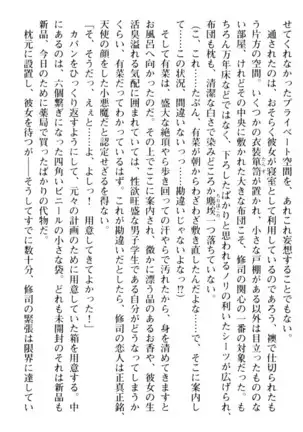 せてくれなかったプライベート空間を、あれこれ妄想することでもない。
通されたのは、おそらく彼女が寝室として利用しているのであろう、襖で仕切られたもう片方の空間。いくつかの衣装箪笥が置かれ、小さな戸棚がある以外は目立ったもののない部屋。けれどその中央に敷かれた大きな布団こそ、修司の関心の一番の対象だった。もちろん万年床などではなく、下ろしたばかりと思われるノリの利いたシーツが広げられ、布団も枕も、清潔な白さで染みどころか塵埃一つ落ちていない。
(こ、これ……たぶん、有菜が朝からわざわざ敷いたんだよな……で、そこに案内して……この状況、間違いないって……勘違いじゃないよなっ!?)
そして有菜は、盛大な絶頂やら歩き回っての汗やらで汚れたから、身を清めてきますとお風呂へ向かったのだ。その上でここに案内され、微かに漂う品のあるお香や、彼女の生活臭溢れる気配に囲まれていては、性欲旺盛な男子学生である自分がどうなってしまうかくらい、有菜だってわかっているはず。これが勘違いだとしたら、修司の恋人は正真正銘、天使の顔をした小悪魔だと認定せざるを得ない。
「そ、そうだっ、えぇと……よ、よしっ! 用意してきてよかった!」
カバンをひっくり返すようにして、元々の計画のために用意していた箱を用意する。中にあるのは、六個繋ぎになった四角いビニールの小さな袋、どれも未開封のそれは新品も新品、今日のために薬局で買ったばかりの代物だ。
枕元に設置し、彼女を待つが――そうしてすでに数十分、修司の緊張は限界に達してい